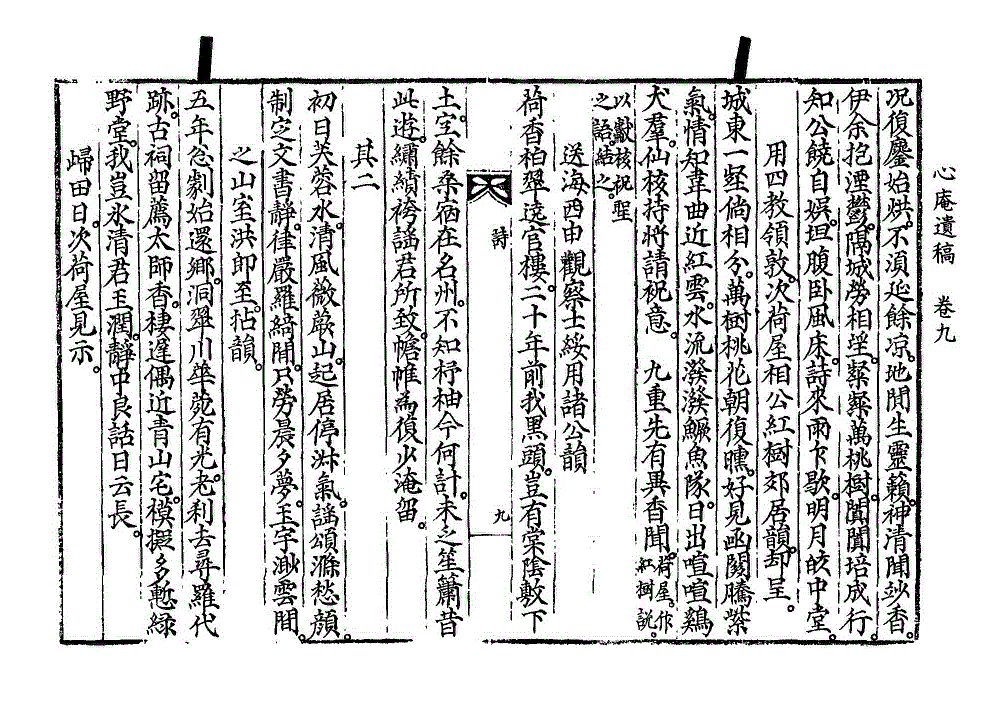 心庵遺稿 卷九
況復鏖始烘。不湏延餘凉。地閒生靈籟。神清聞妙香。
伊余抱湮鬱。隔城勞相望。粲粲萬桃樹。闐闐培成行。
知公饒自娯。坦腹卧風床。詩來雨乍歇。明月皎中堂。
用四教領敦。次荷屋相公紅樹郊居韻。却呈。
城東一壑倘相分。萬樹桃花朝復曛。好見函關騰紫
氣。情知韋曲近紅雲。水流潑潑鱖魚隊。日出喧喧鷄
犬羣。仙核持將請祝意。 九重先有異香聞。荷屋。作紅樹説。
以獻核祝聖之語。結之。
送海西申 觀察士綏用諸公韻
荷香柏翠遶官樓。二十年前我黑頭。豈有棠陰敷下
詩 九
土。空餘桑宿在名州。不知杼柚今何計。未乏笙簫昔
此遊。繡績袴謠君所致。幨帷爲復少淹留。
其二
初日芙蓉水。清風微蕨山。起居停沴氣。謠頌滌愁顔。
制定文書靜。律嚴羅綺閒。只勞晨夕夢。玉宇渺雲間。
之山室洪卽至。拈韻。
五年怱劇始還鄉。洞翠川華菀有光。老利去尋羅代
跡。古祠留薦太師香。棲遲偶近青山宅。模擬多慙緑
野堂。我豈氷清君玉潤。靜中良話日云長。
歸田日。次荷屋見示。